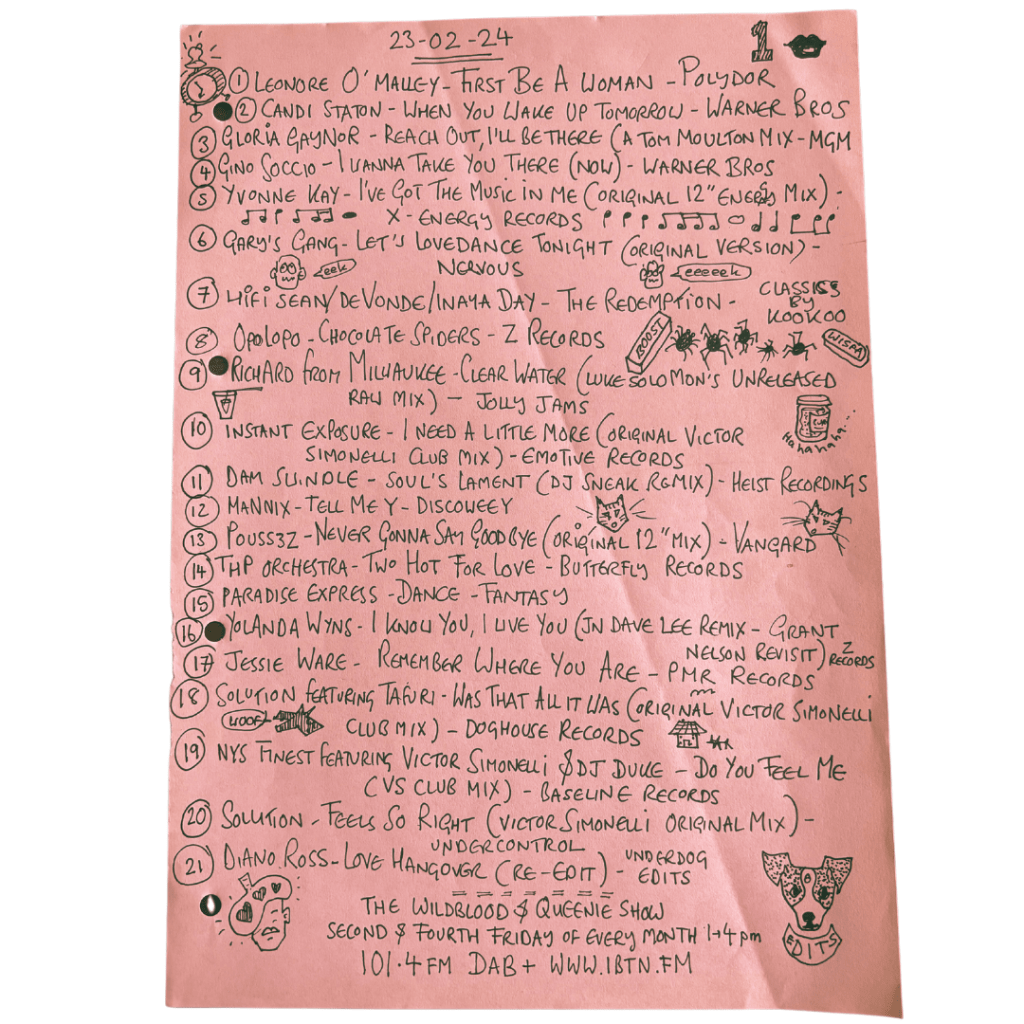 23-02-24
1
① LEONORE O'MALLEY - FIRST BE A WOMAN - POLYDOR
② CANDI STATON - WHEN YOU WAKE UP TOMORROW - WARNER BROS
③ GLORIA GAYNOR - REACH OUT, I'LL BE THERE (A TOM MOULTON MIX - MGM
④ GINO SOCCIO - I WANNA TAKE YOU THERE (NOW) - WARNER BROS
⑤ YVONNE KAY - I'VE GOT THE MUSIC IN ME (ORIGINAL 12" ENERGY MIX) -
X-ENERGY RECORDS
⑥ GARY'S GANG - LET'S LOVEDANCE TONIGHT (ORIGINAL VERSION) -
eek NERVOUS eeeeek
⑦ HIFI SEAN/DEVONDE/INAYA DAY - THE REDEMPTION - CLASSICS
BY
KOOKOO
⑧ OPOLOPO - CHOCOLATE SPIDERS - Z RECORDS BOOST WISPA
⑨ RICHARD FROM MILWAUKEE - CLEAR WATER (LUKE SOLOMON'S UNRELEASED
RAW MIX) - JOLLY JAMS
⑩ INSTANT EXPOSURE - I NEED A LITTLE MORE (ORIGINAL VICTOR
Hahahaha...
SIMONELLI CLUB MIX) - EMOTIVE RECORDS
⑪ DAM SWINDLE - SOUL'S LAMENT (DJ SNEAK REMIX) - HEIST RECORDINGS
⑫ MANNIX - TELL ME Y - DISCOWEEY
⑬ POUSSEZ - NEVER GONNA SAY GOODBYE (ORIGINAL 12" MIX) - VANGARD
⑭ THP ORCHESTRA - TWO HOT FOR LOVE - BUTTERFLY RECORDS
⑮ PARADISE EXPRESS - DANCE - FANTASY
⑯ YOLANDA WYNS - I KNOW YOU, I LIVE YOU (JN DAVE LEE REMIX - GRANT
NELSON REVISIT) Z RECORDS
⑰ JESSIE WARE - REMEMBER WHERE YOU ARE - PMR RECORDS
⑱ SOLUTION FEATURING TAFURI - WAS THAT ALL IT WAS (ORIGINAL VICTOR SIMONELLI
WOOF CLUB MIX) - DOGHOUSE RECORDS
⑲ NYS FINEST FEATURING VICTOR SIMONELLI & DJ DUKE - DO YOU FEEL ME
(VS CLUB MIX) - BASELINE RECORDS
⑳ SOLUTION - FEELS SO RIGHT (VICTOR SIMONELLI ORIGINAL MIX) -
UNDERCONTROL
㉑ DIANO ROSS - LOVE HANGOVER (RE-EDIT) - UNDERDOG
EDITS
THE WILDBLOOD & QUEENIE SHOW
SECOND & FOURTH FRIDAY OF EVERY MONTH 1→4pm
EDITS
101.4 FM DAB+ WWW.1BTN.FM